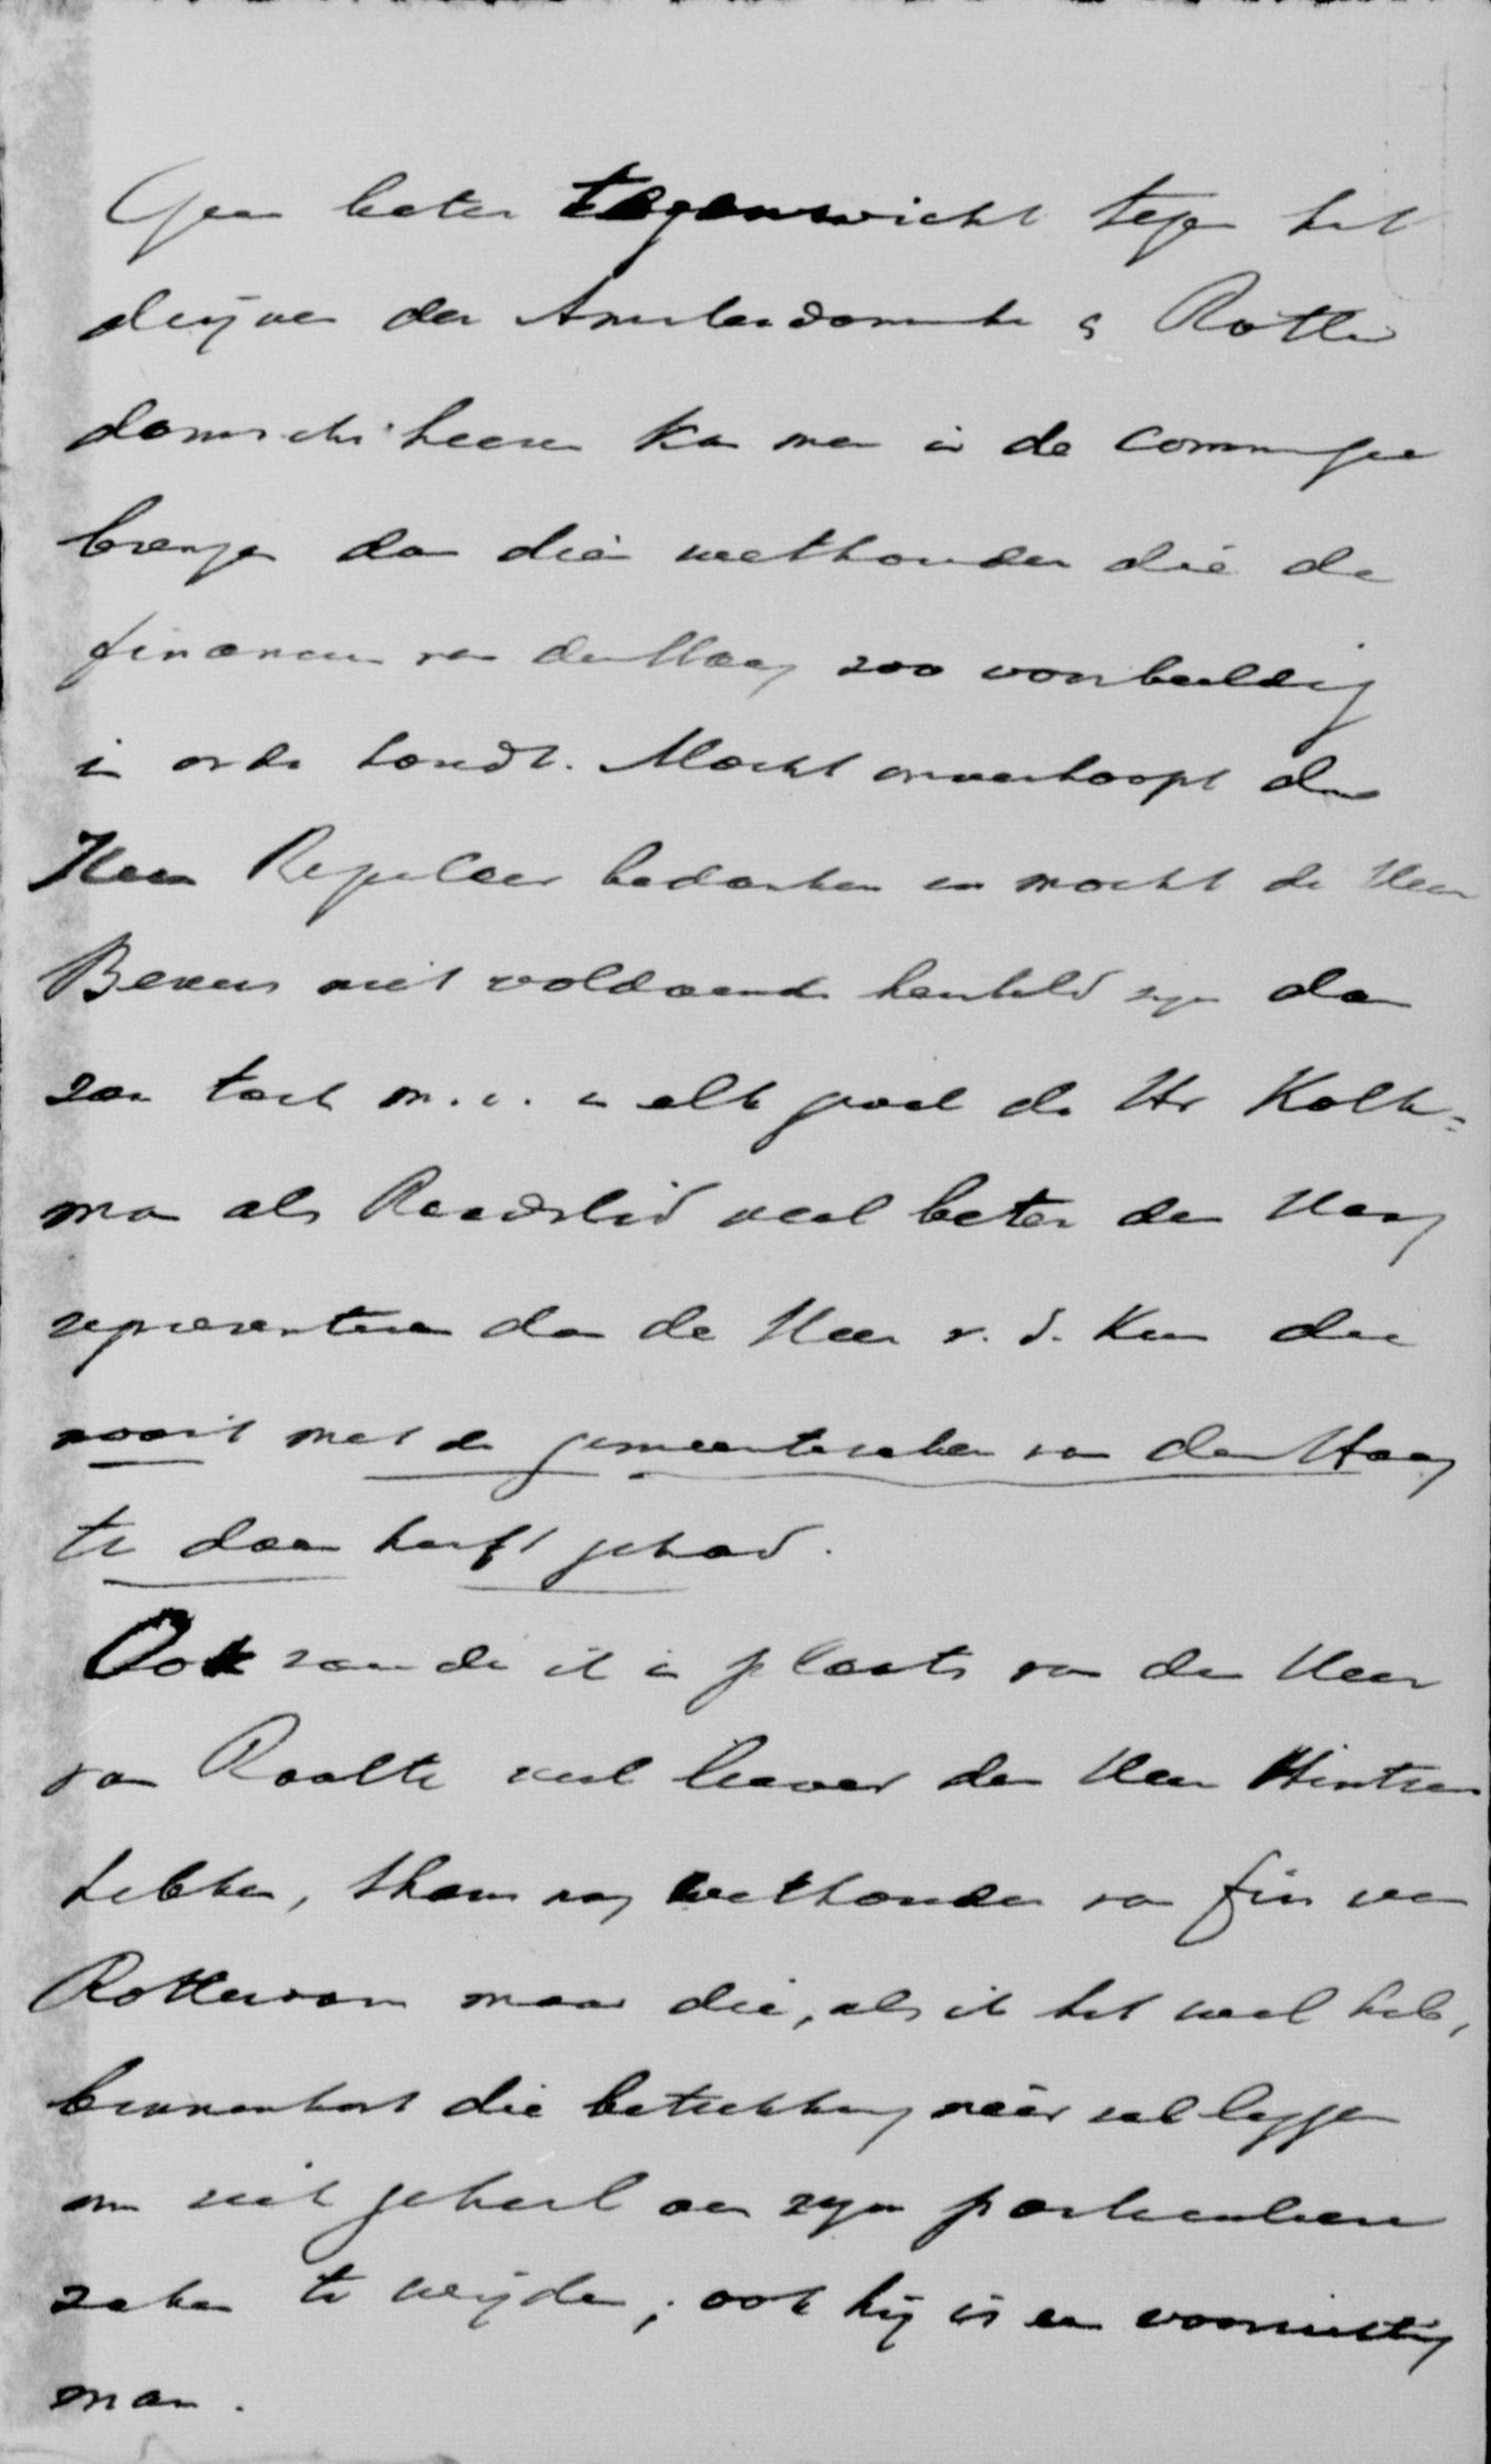 Geen beter tegenwicht tegen het
drijven der Amsterdamsche & Rotter
damsche heeren kan men in de commissie
brengen dan dien wethouder die de
financien van den Haag zoo voorbeeldig
in orde houdt. Mocht onverhoopt de
Heer bedanken en mocht de Heer
Bevers niet voldoende hersteld zijn dan
zou toch m.i. in elk geval de Hr Kolk=
man als Raadslid veel beter den Haag
representeeren dan de Heer v. d. die
nooit met de gemeentezaken van den Haag
te doen heeft gehad.
Ook zoude ik in plaats van den Heer
van Raalte veel liever den Heer Hintzen
hebben, thans nog wethouder van fin van
Rotterdam maar die, als ik het wel heb,
binnenkort die betrekking néér zal leggen
om zich geheel aan zijn particuliere
zaken te wijden; ook hij is een voorzichtig
man.